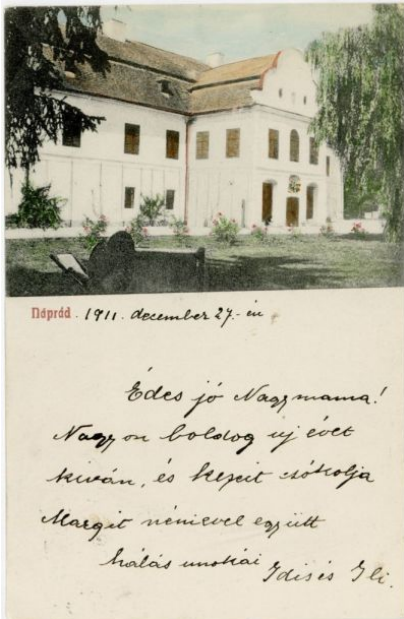 Náprád. 1911. december 27.-én
Édes jó Nagymama!
Nagyon boldog új évet
kiván, és kezeit csókolja
Margit nénievel együtt
hálás unokái Idis és Ili.